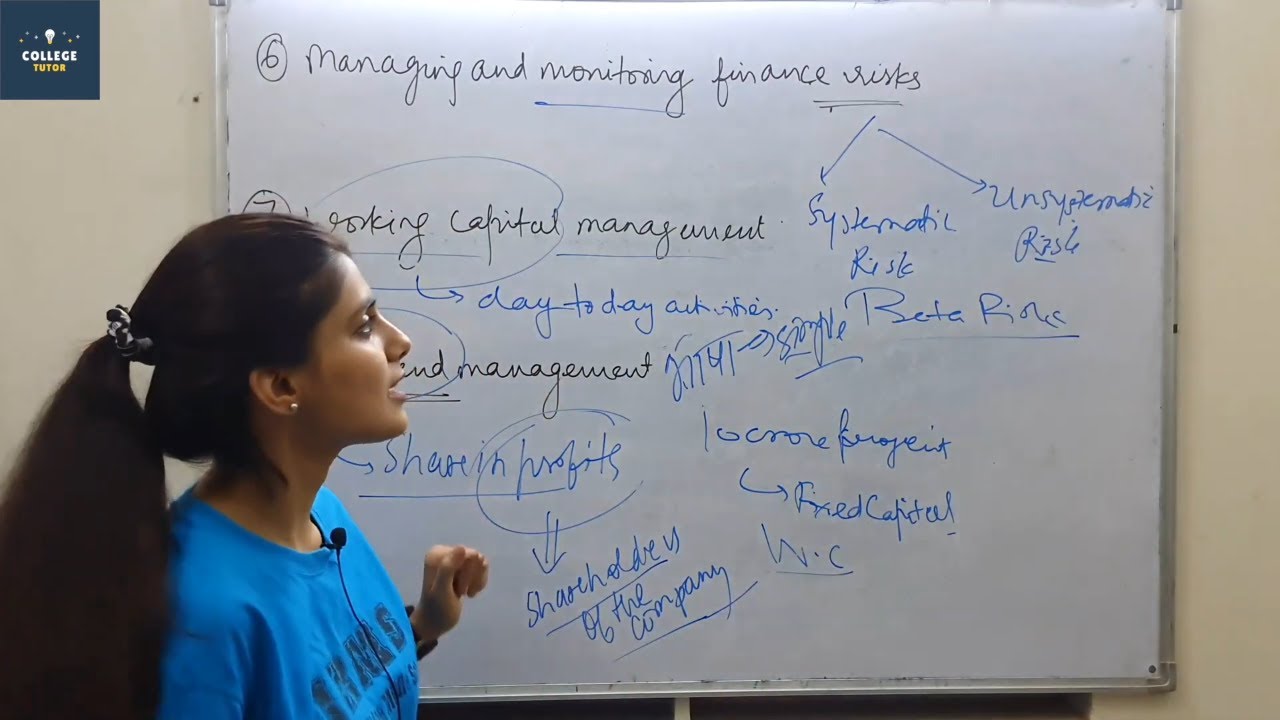 COLLEGE
TUTOR
⑥ Managing and monitoring finance risks
Systematic
Risk
Unsystematic
Risk
⑦ Working capital management
day to day activities.
Beta Risk
भाषा → simple
ind management
Share in profits
10 crore project
Fixed Capital
W.C
Shareholders
of the
company